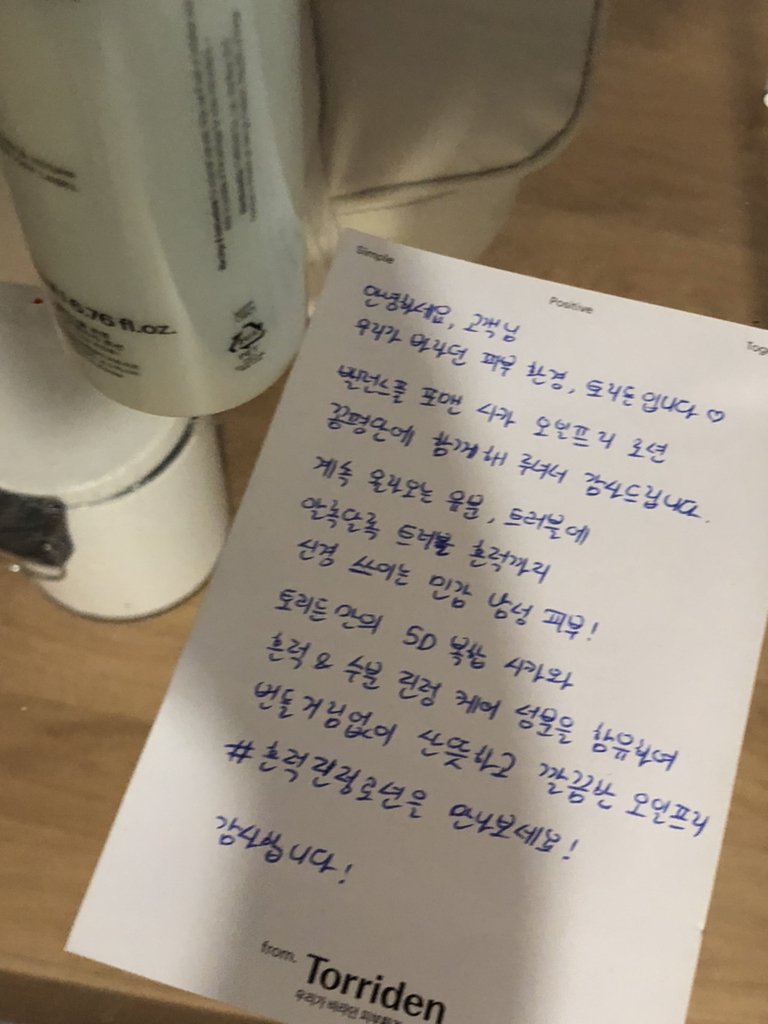 6.76 fl.oz.
Simple
Positive
Tog
안녕하세요, 고객님
우리가 바라던 피부 환경, 토리든입니다 ♡
밸런스풀 포맨 시카 오일프리 로션
꼼평단에 함께해 주셔서 감사드립니다.
계속 올라오는 유분, 트러블에
알록달록 트러블 흔적까지
신경 쓰이는 민감 남성 피부!
토리든만의 5D 복합 시카와
흔적 & 수분 진정 케어 성분을 함유하여
번들거림없이 산뜻하고 깔끔한 오일프리
#흔적진정로션을 만나보세요!
감사합니다!
from. Torriden
우리가 바라던 피부환경